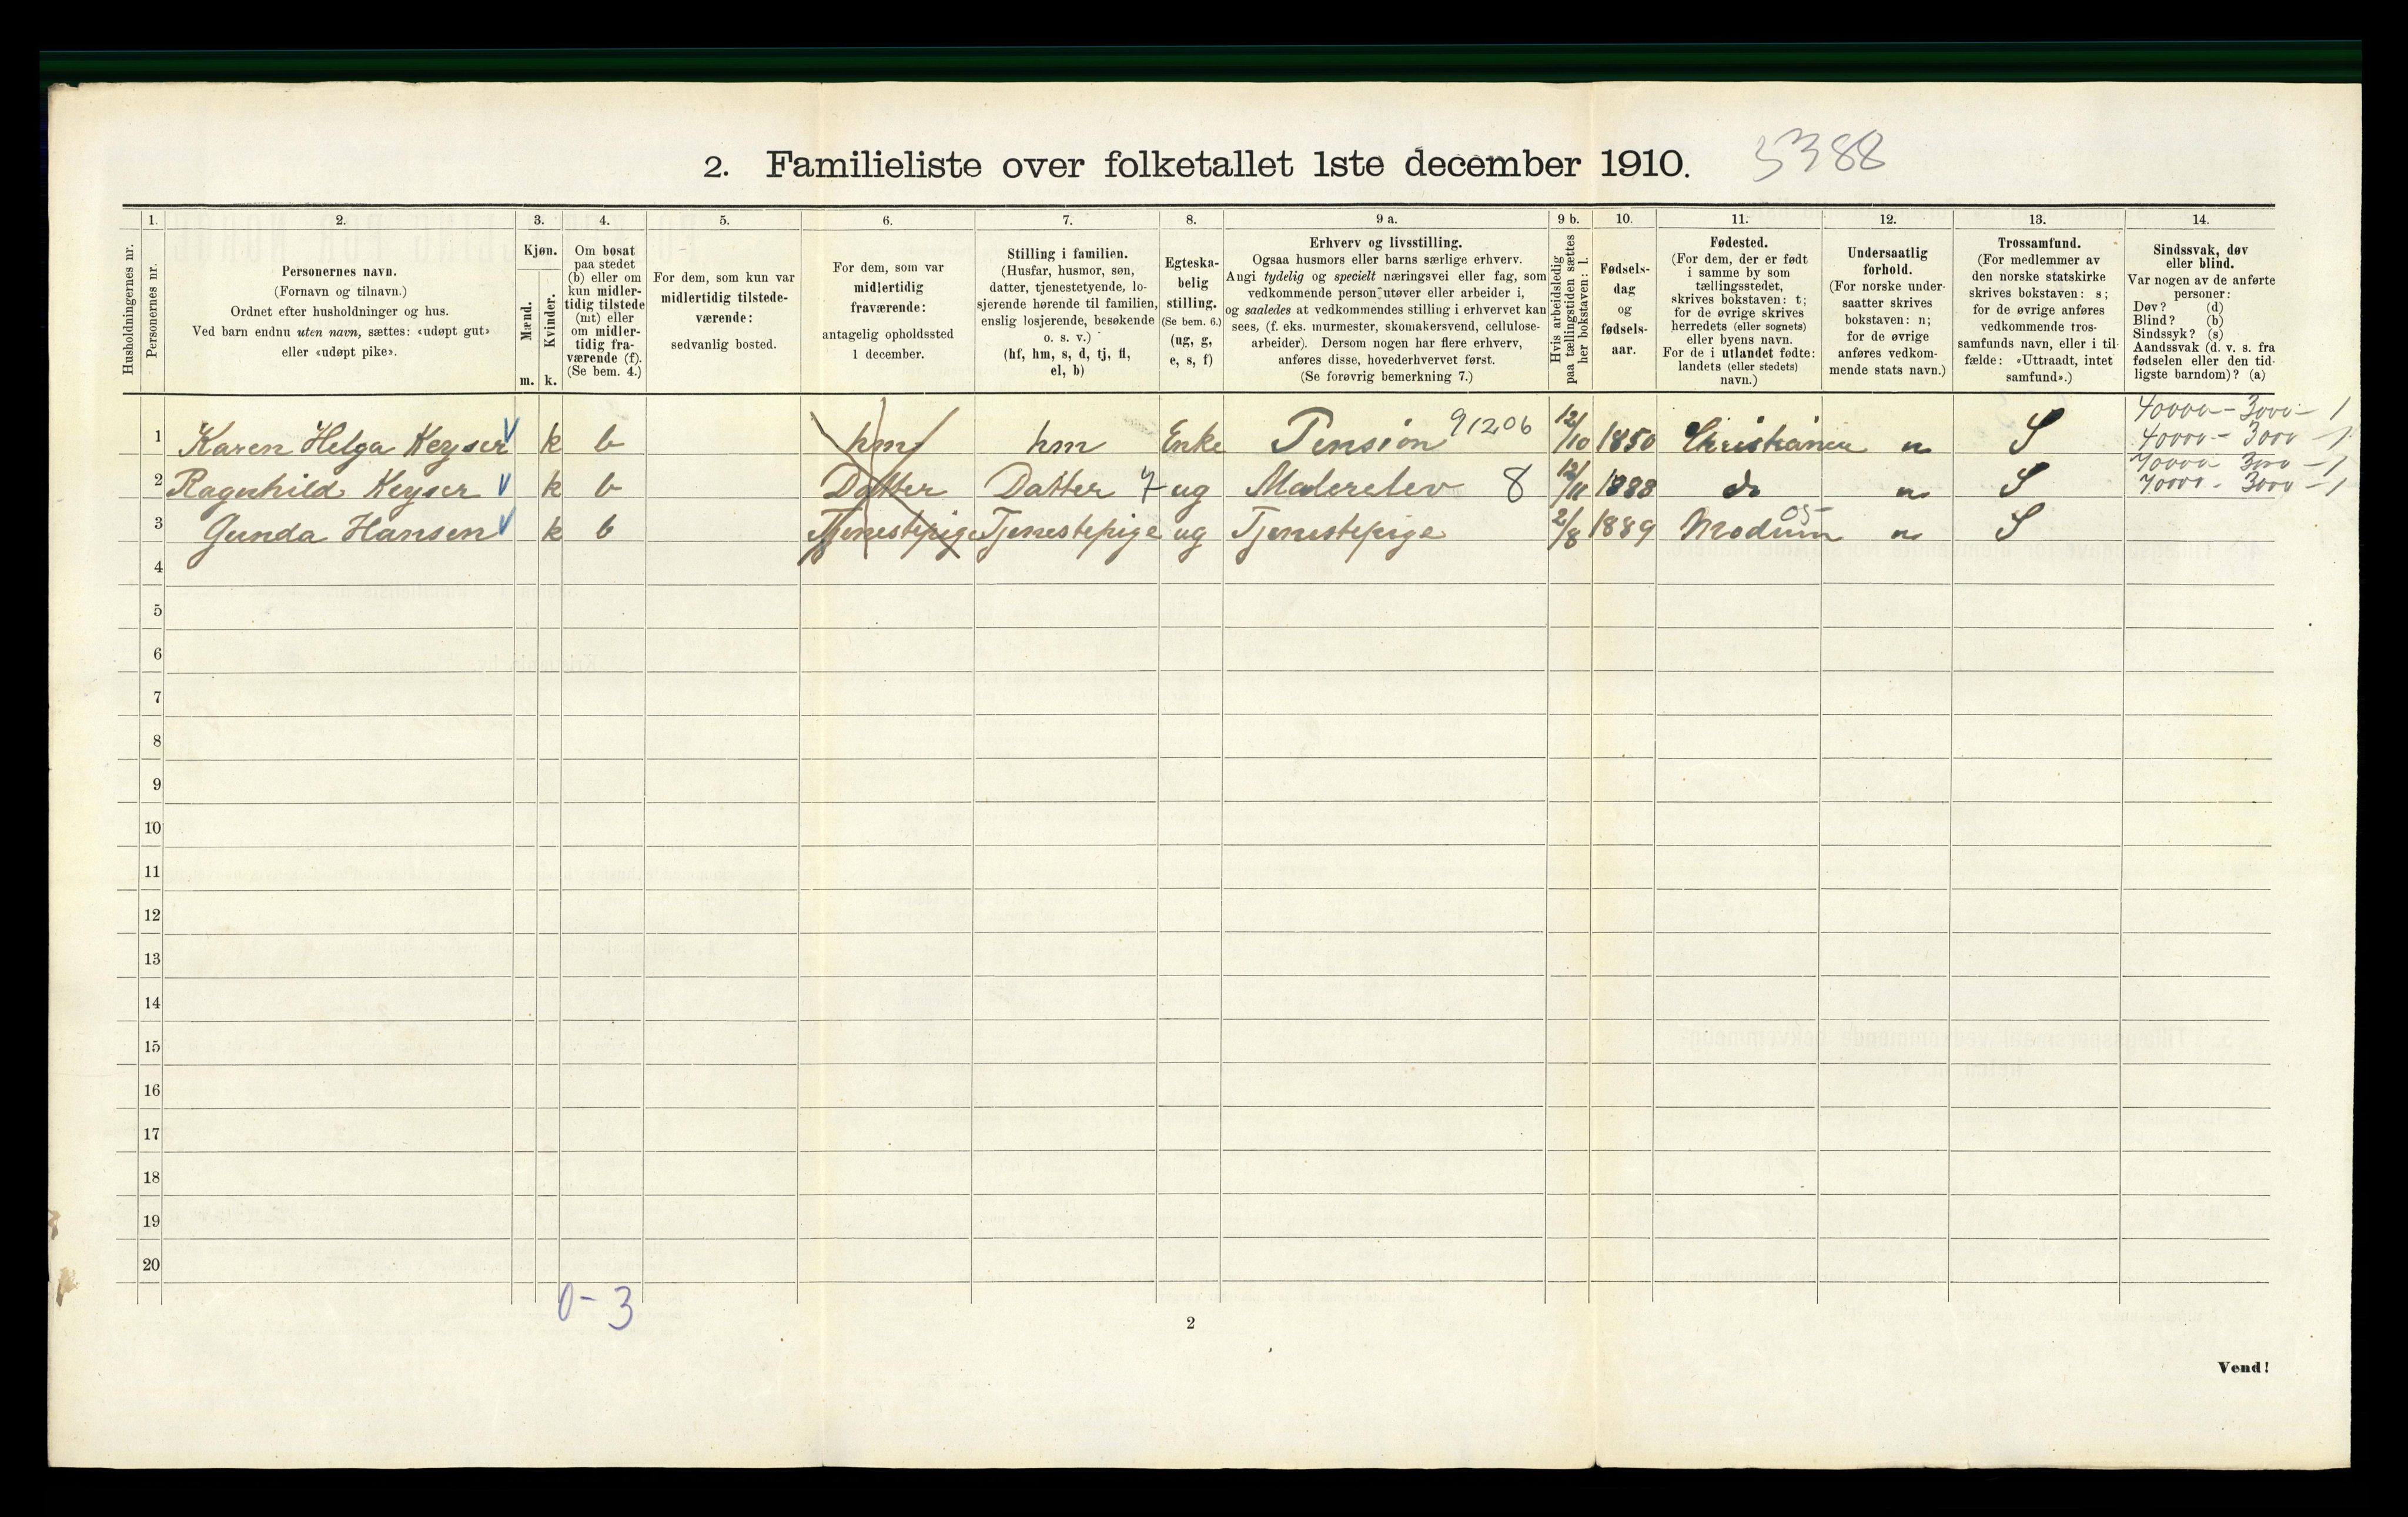 2. Familieliste over folketallet 1ste december 1910. 5388
Husholdningernes nr.
1. Personernes nr.
2.
Personernes navn.
(Fornavn og tilnavn.)
Ordnet efter husholdninger og hus.
Ved barn endnu uten navn, sættes: «udøpt gut»
eller «udøpt pike».
3.
Kjøn.
Mænd.
m.
Kvinder.
k.
4.
Om bosat
paa stedet
(b) eller om
kun midler-
tidig tilstede
(mt) eller
om midler-
tidig fra-
værende (f).
(Se bem. 4.)
5.
For dem, som kun var
midlertidig tilstede-
værende:
sedvanlig bosted.
6.
For dem, som var
midlertidig
fraværende:
antagelig opholdssted
1 december.
7.
Stilling i familien.
(Husfar, husmor, søn,
datter, tjenestetyende, lo-
sjerende hørende til familien,
enslig losjerende, besøkende
o. s. v.)
(hf, hm, s, d, tj, fl,
el, b)
8.
Egteska-
belig
stilling.
(Se bem. 6.)
(ug, g,
e, s, f)
9 a.
Erhverv og livsstilling.
Ogsaa husmors eller barns særlige erhverv.
Angi tydelig og specielt næringsvei eller fag, som
vedkommende person utøver eller arbeider i,
og saaledes at vedkommendes stilling i erhvervet kan
sees, (f. eks. murmester, skomakersvend, cellulose-
arbeider). Dersom nogen har flere erhverv,
anføres disse, hovederhvervet først.
(Se forøvrig bemerkning 7.)
9 b.
Hvis arbeidsledig
paa tællingstiden sættes
her bokstaven: l.
10.
Fødsels-
dag
og
fødsels-
aar.
11.
Fødested.
(For dem, der er født
i samme by som
tællingsstedet,
skrives bokstaven: t;
for de øvrige skrives
herredets (eller sognets)
eller byens navn.
For de i utlandet fødte:
landets (eller stedets)
navn.)
12.
Undersaatlig
forhold.
(For norske under-
saatter skrives
bokstaven: n;
for de øvrige
anføres vedkom-
mende stats navn.)
13.
Trossamfund.
(For medlemmer av
den norske statskirke
skrives bokstaven: s;
for de øvrige anføres
vedkommende tros-
samfunds navn, eller i til-
fælde: «Uttraadt, intet
samfund».)
14.
Sindssvak, døv
eller blind.
Var nogen av de anførte
personer:
Døv? (d)
Blind? (b)
Sindssyk? (s)
Aandssvak (d. v. s. fra
fødselen eller den tid-
ligste barndom)? (a)
40000 - 3000 - 1
1 Karen Helga Keyser V k b hm hm Enke Pension 91206 12/10 1850 Christiania n S 40000 - 3000 - 1
70000 - 3000 - 1
2 Ragnhild Keyser V k b Datter Datter 7 ug Malerelev 8 12/11 1888 do n S 70000 - 3000 - 1
3 Gunda Hansen V k b Tjenestepige Tjenestepige ug Tjenestepige 2/8 1889 Modum 05- n S
4
5
6
7
8
9
10
11
12
13
14
15
16
17
18
19
20
0 - 3
2
Vend!